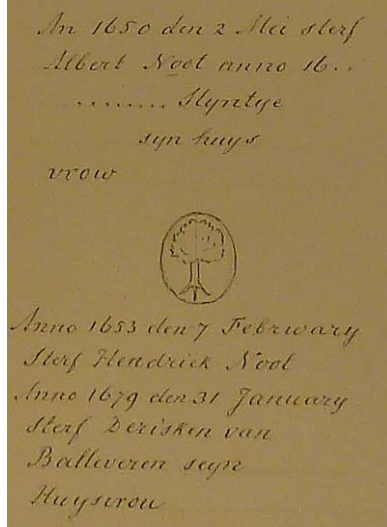 An 1650 den 2 Mei sterf
Albert Noot anno 16..
......... Styntye
syn huys
vrow
Anno 1653 den 7 February
Sterf Hendrick Noot
Anno 1679 den 31 January
sterf Derisken van
Balleveren seyn
Huysvrou